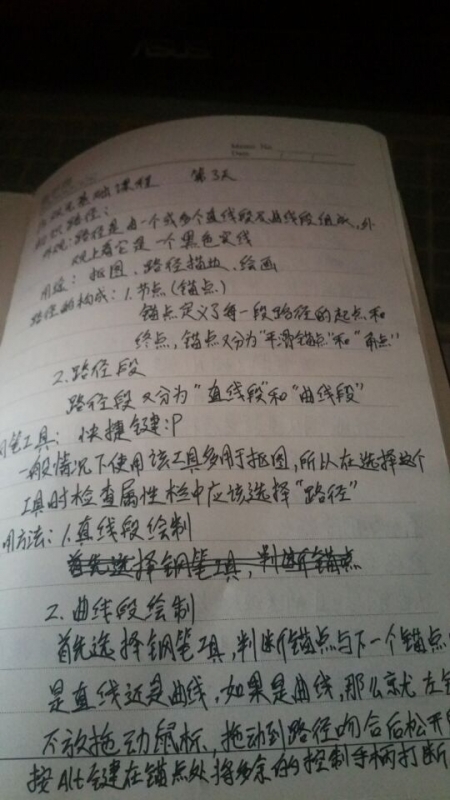 ASUS
Memo No.
Date
零基础课程 第3天
认识路径：
外观：路径是由一个或多个直线段或曲线段组成，外
观上看它是一个黑色实线
用途：抠图、路径描边、绘画
路径的构成：1.节点（锚点）
锚点定义了每一段路径的起点和
终点，锚点又分为"平滑锚点"和"角点"
2.路径段
路径段又分为"直线段"和"曲线段"
笔工具：快捷键：P
一般情况下使用该工具多用于抠图，所以在选择这个
工具时检查属性栏中应该选择"路径"
用方法：1.直线段绘制
首先选择钢笔工具，判断锚点
2.曲线段绘制
首先选择钢笔工具，判断锚点与下一个锚点
是直线还是曲线，如果是曲线，那么就左键
不放拖动鼠标，拖动到路径吻合后松开
按Alt键在锚点处将多余的控制手柄打断